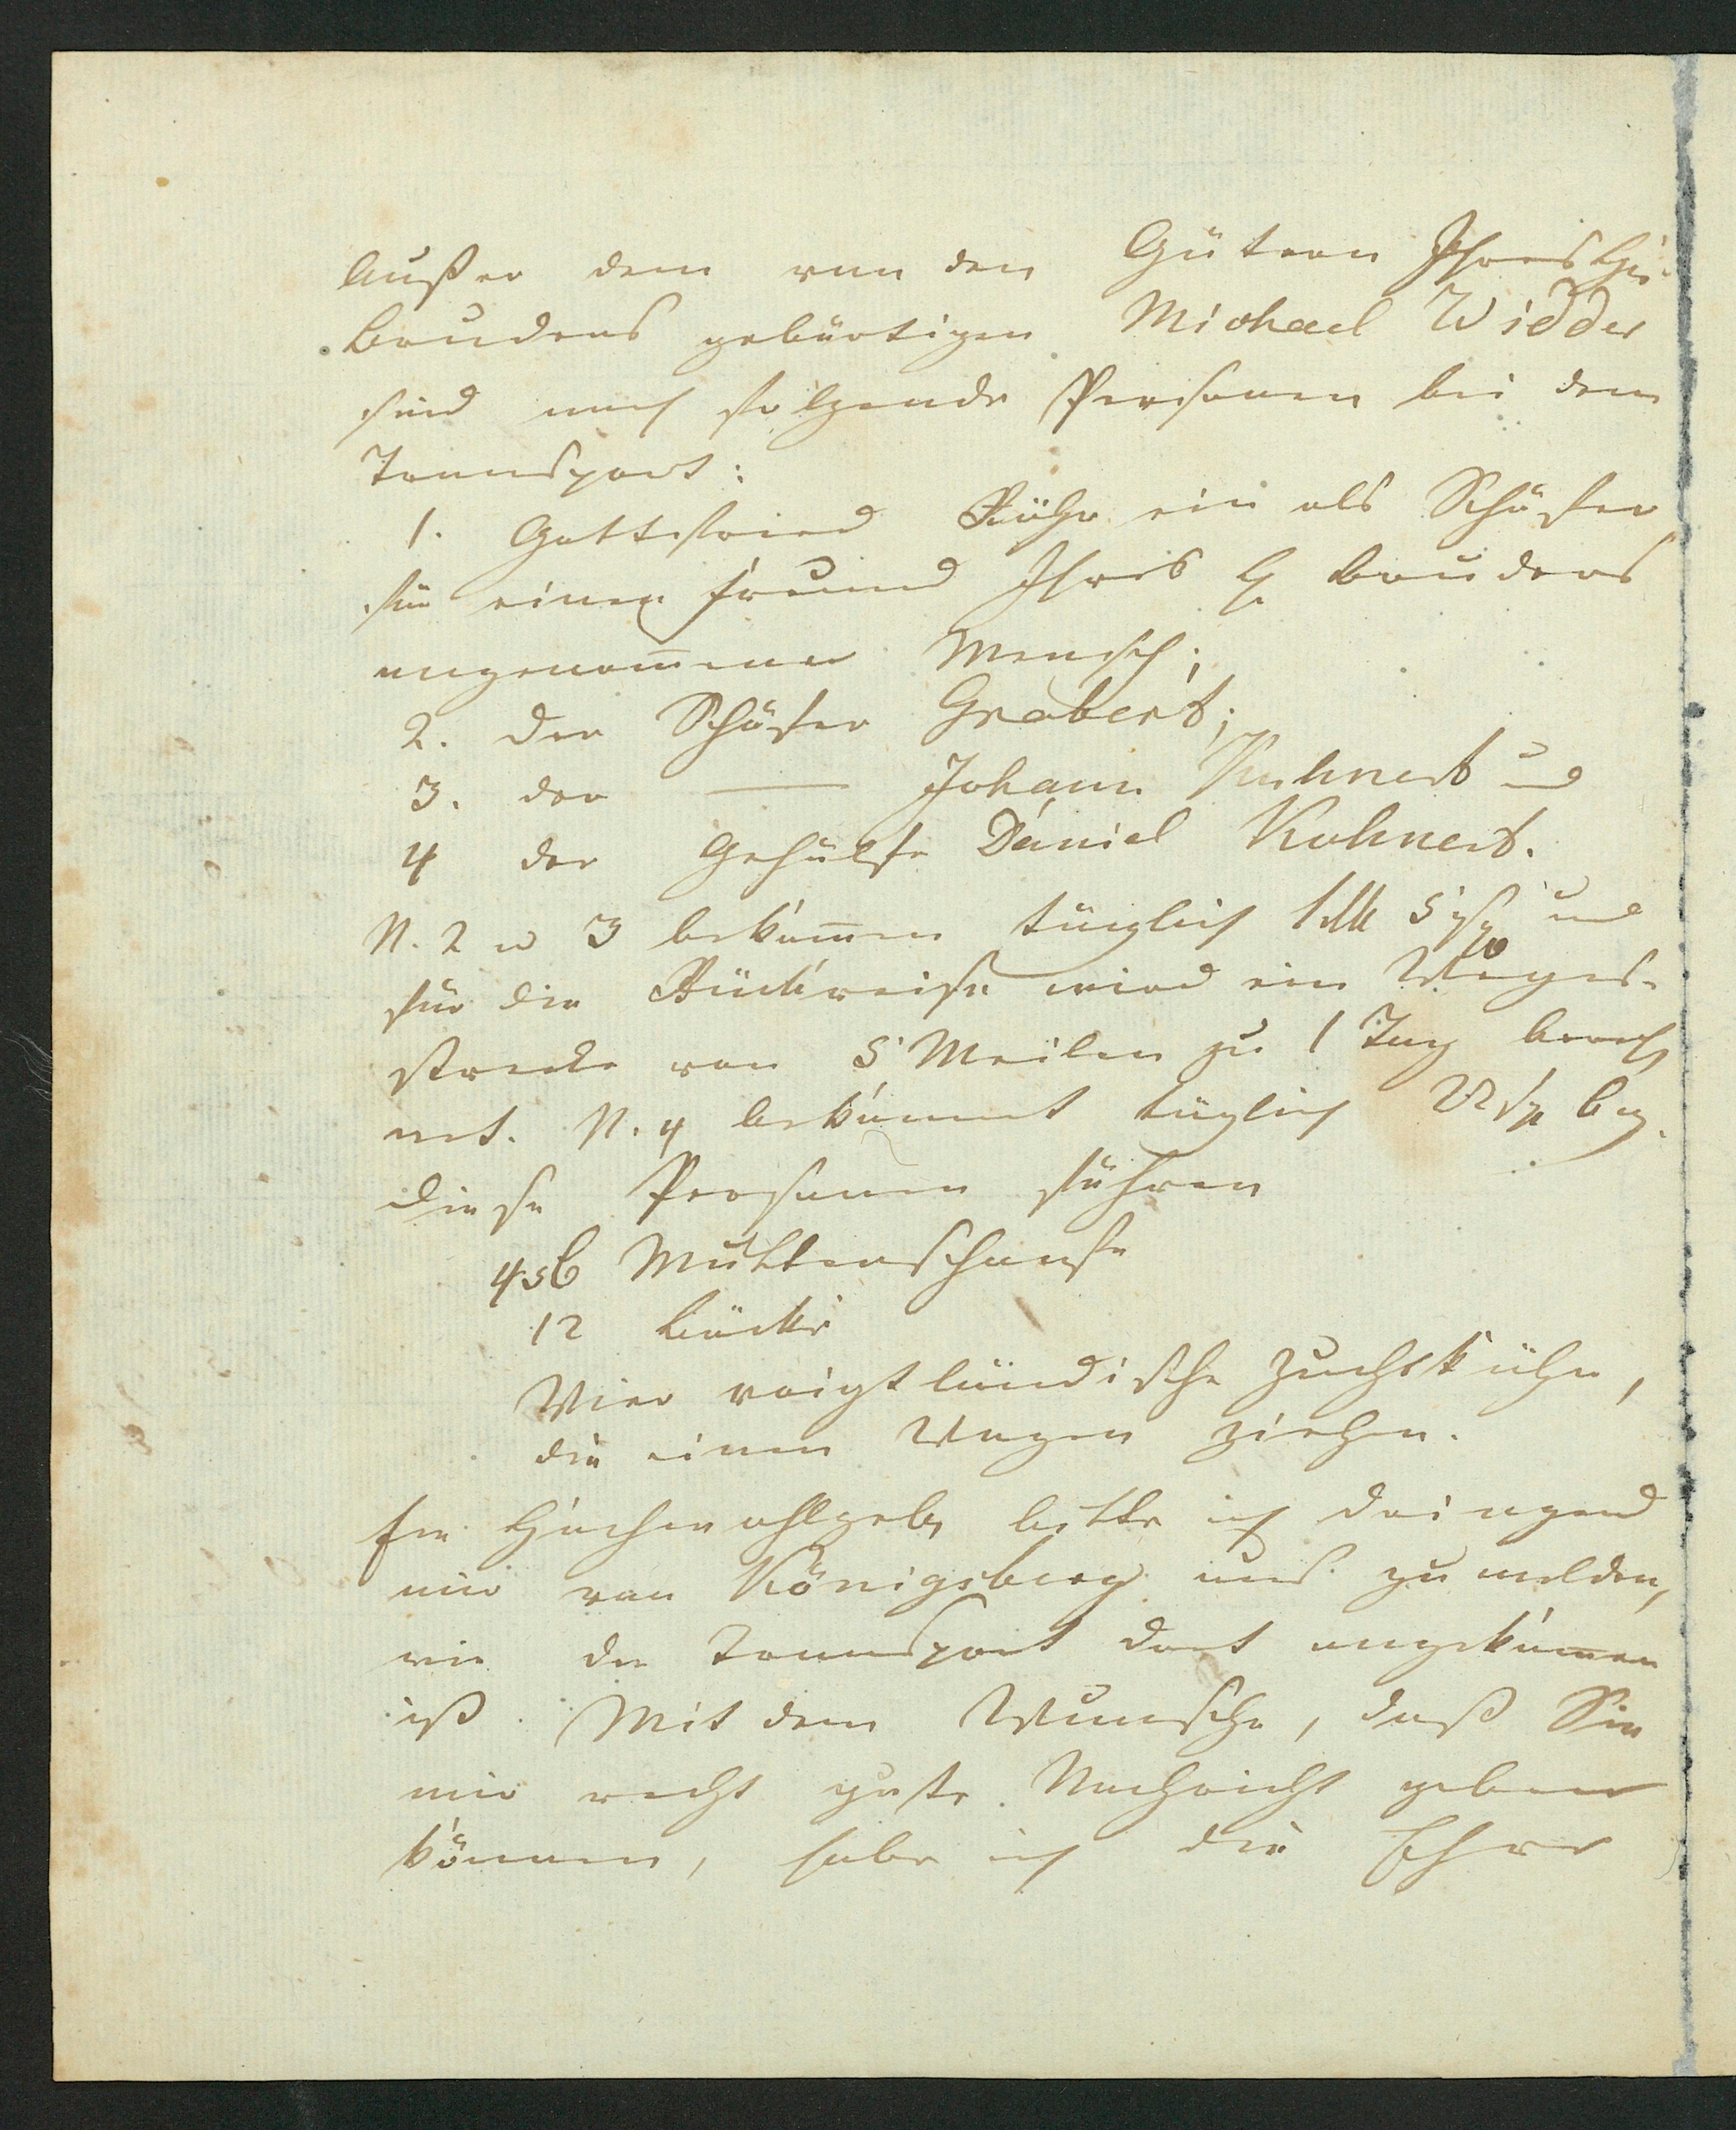 Außer dem von den Gütern Ihres H.
Bruders gebürtigen Michael Widder
sind noch folgende Personen bei dem
Transport:
1. Gottfried Rühr ein als Schäfer
für einen Freund Ihres H Bruders
angenom̅ener Mensch;
2. der Schäfer Grabert;
3. der — Johann Kuhnert und
4 der Gehülfe Daniel Kuhnert.
N. 2 u 3 bekom̅en täglich 1 5 und
für die Rückreise wird ein Weges-
strecke von 5 Meilen zu 1 Tag berech
net. N. 4 bekommt täglich
Diese Personen führen
456 Mutterschaafe
12 Böcke
Vier voigtländische Zuchtkühe,
die einen Wagen ziehen.
Ew Hochwohlgeb bitte ich dringend
mir von Königsberg aus zu melden,
wie der Transport dort angekom̅en
ist. Mit dem Wunsche, daß Sie
mir recht gute Nachricht geben
können, habe ich die Ehre